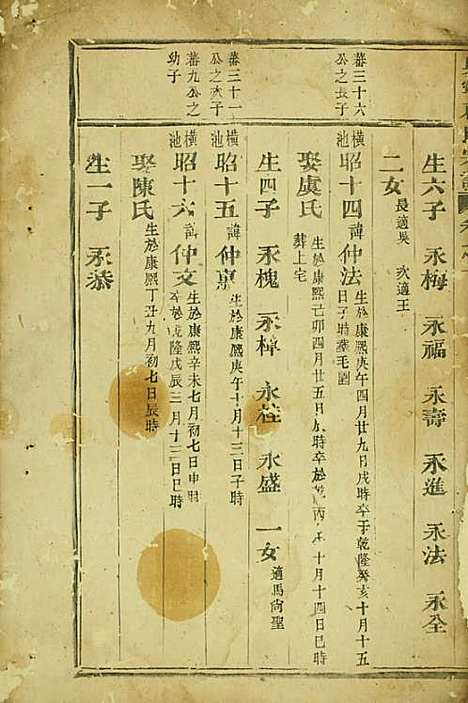 生六子 永梅 永福 永壽 永進 永法 永全
二女 長適吳 次適王
蕃三十六
公之長子
橫池 昭十四 諱 仲法 生於康熙庚午四月廿九日戌時卒于乾隆癸亥十月十五
日子時墓毛園
娶虞氏 生於康熙己卯四月廿五日 時卒於 丙 十月十四日巳時
葬上宅
生四子 永槐 永樟 永桂 永盛 一女 適馬尚聖
蕃三十一
公之次子
橫池 昭十五 諱 仲 生於康熙庚午十月十二日子時
蕃九公之
幼子
橫池 昭十六 諱 仲文 生於康熙辛未七月初七日申時
卒於 隆戊辰三月十三日巳時
娶陳氏 生於康熙丁丑九月初七日辰時
生一子 永恭